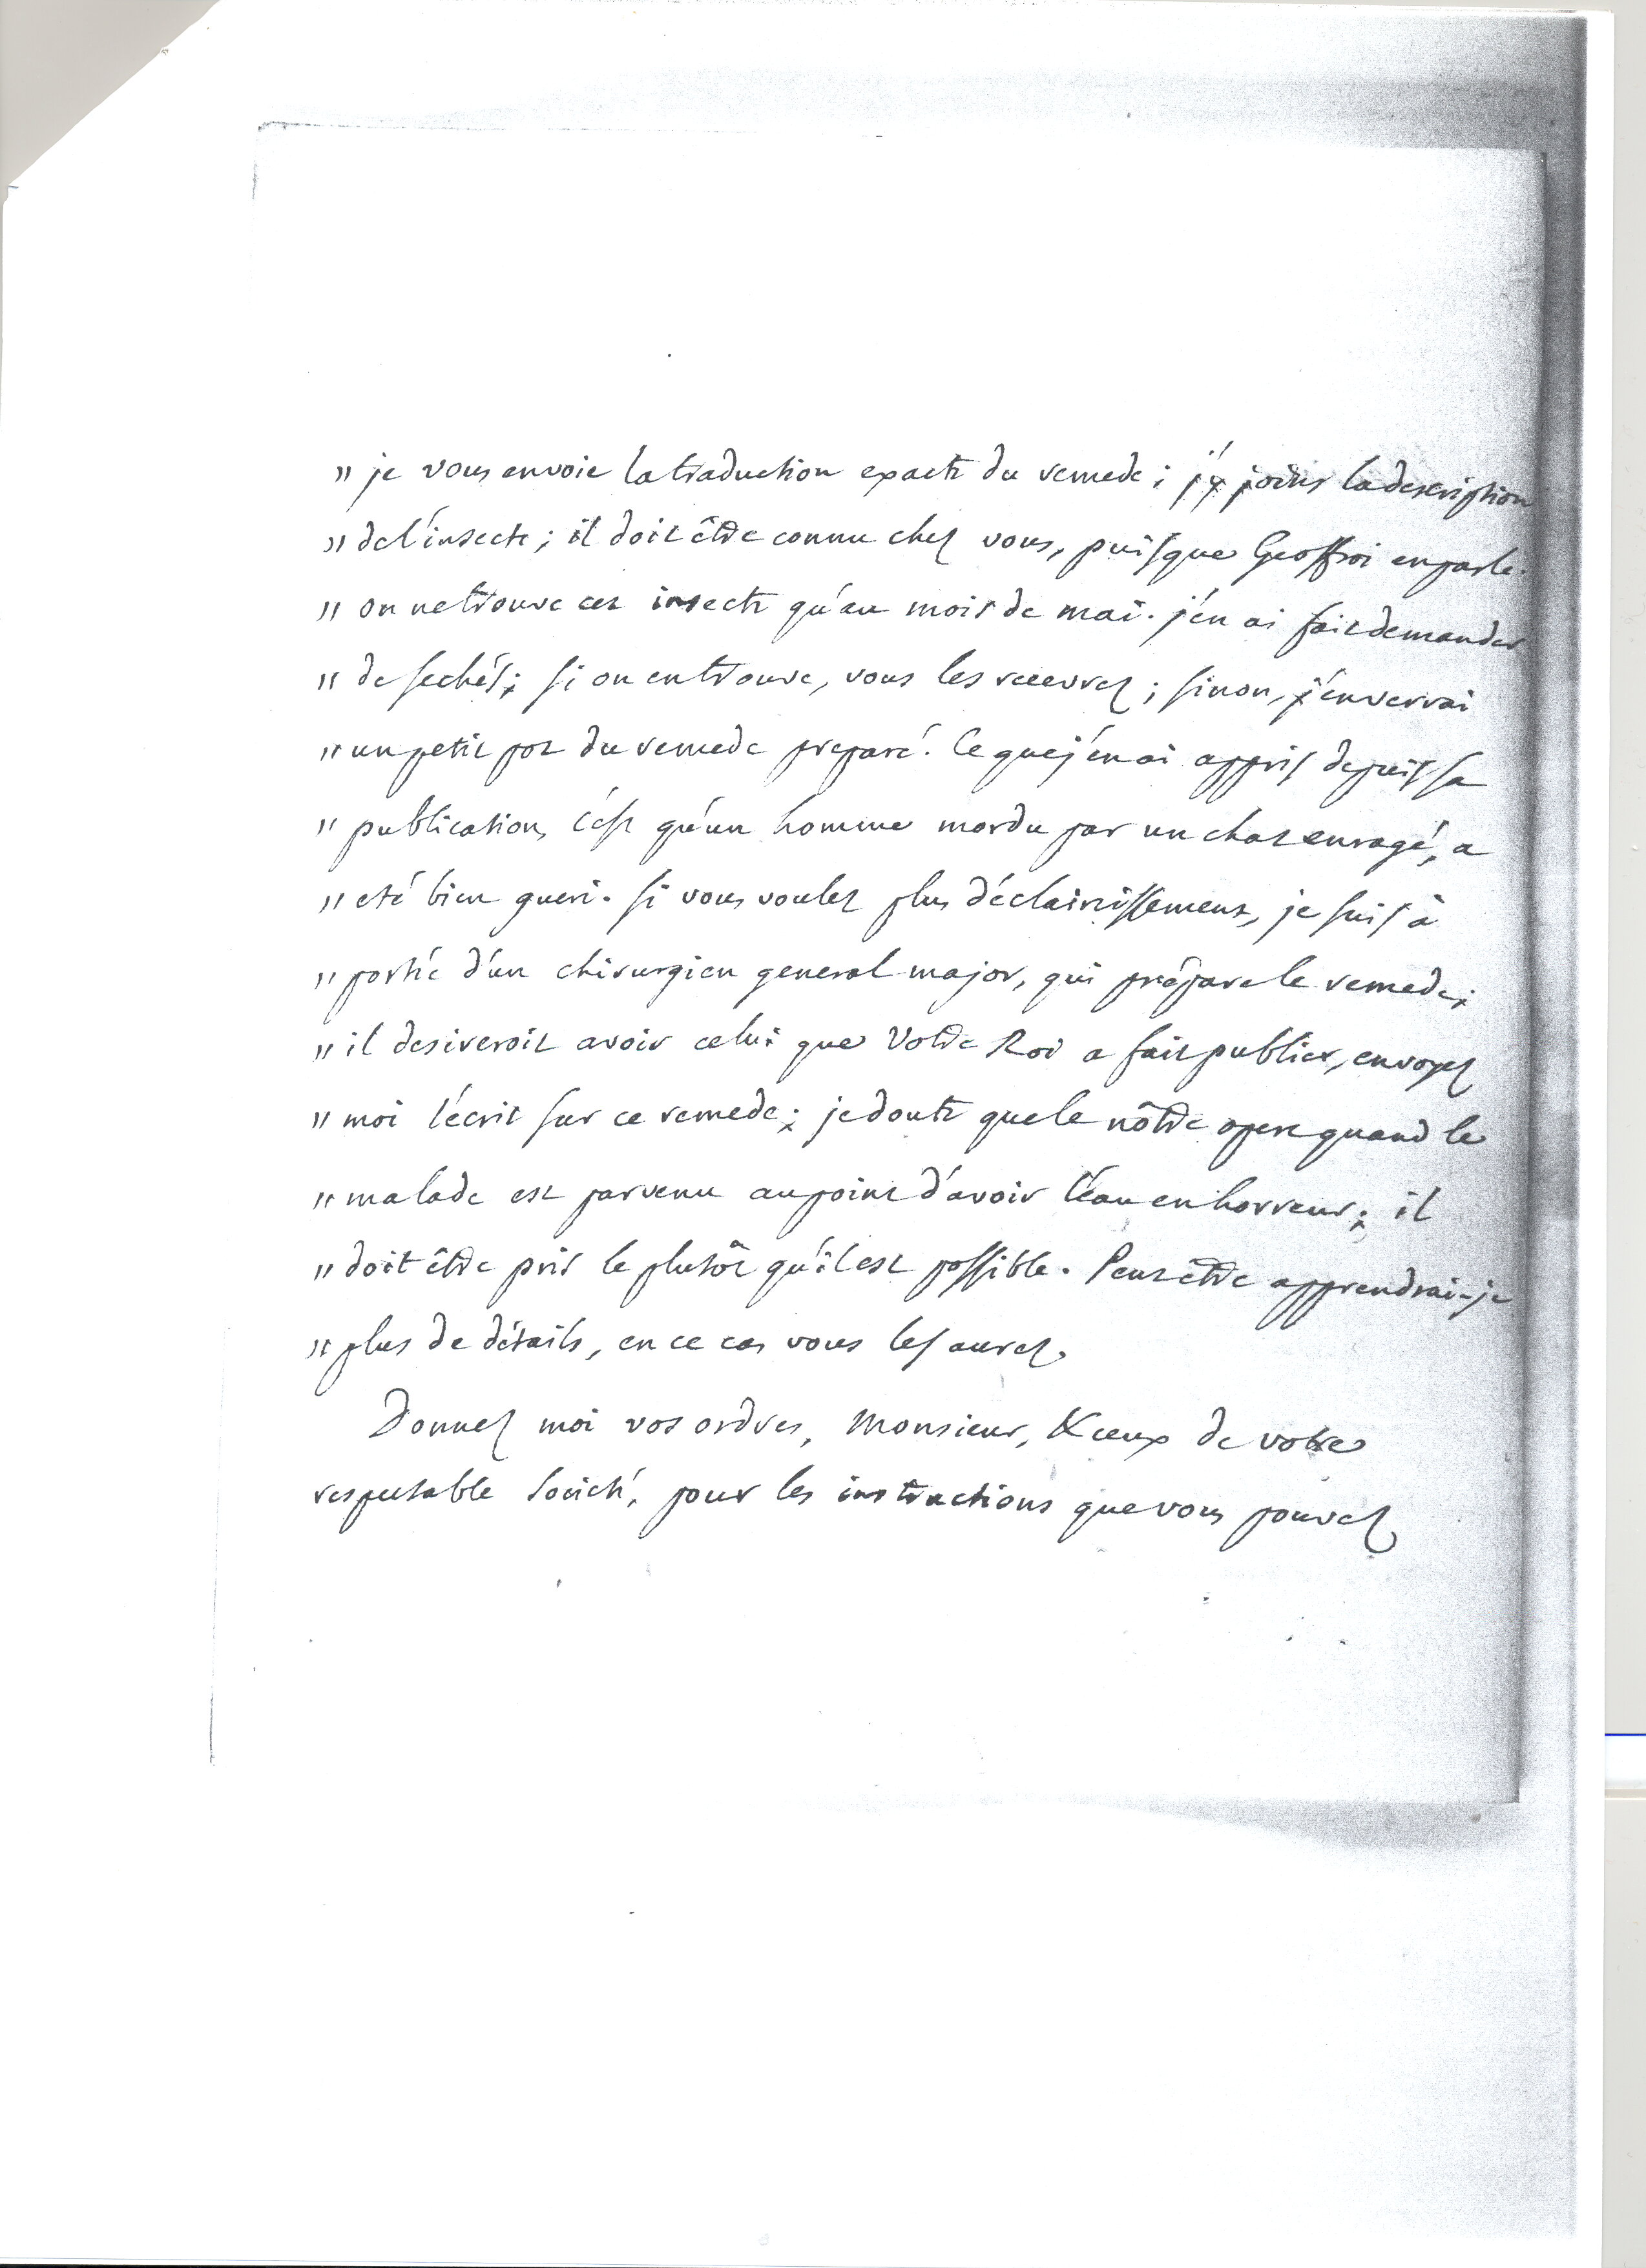 " je vous envoie la traduction exacte du remede ; j'y joins la description
" de l'insecte ; il doit être connu chez vous, puisque Geoffroi en parle.
" on ne trouve cet insecte qu'au mois de mai. j'en ai fait demander
" de sechés ; si on en trouve, vous les recevrez ; sinon, j'enverrai
" un petit pot du remede preparé. Ce que j'en ai appris depuis sa
" publication, c'est qu'un homme mordu par un chat enragé, a
" eté bien gueri. si vous voulez plus d'éclaircissement, je suis à
" portée d'un chirurgien general major, qui prépare le remede ;
" il desireroit avoir celui que Votre Roi a fait publier, envoyez
" moi l'écrit sur ce remede ; je doute que le nôtre opere quand le
" malade est parvenu au point d'avoir l'éau en horreur ; il
" doit être pris le plutôt qu'il est possible. Peut être apprendrai-je
" plus de détails, en ce cas vous les aurez.
Donnez moi vos ordres, Monsieur, & ceux de votre
respectable Societé, pour les instructions que vous pouvez